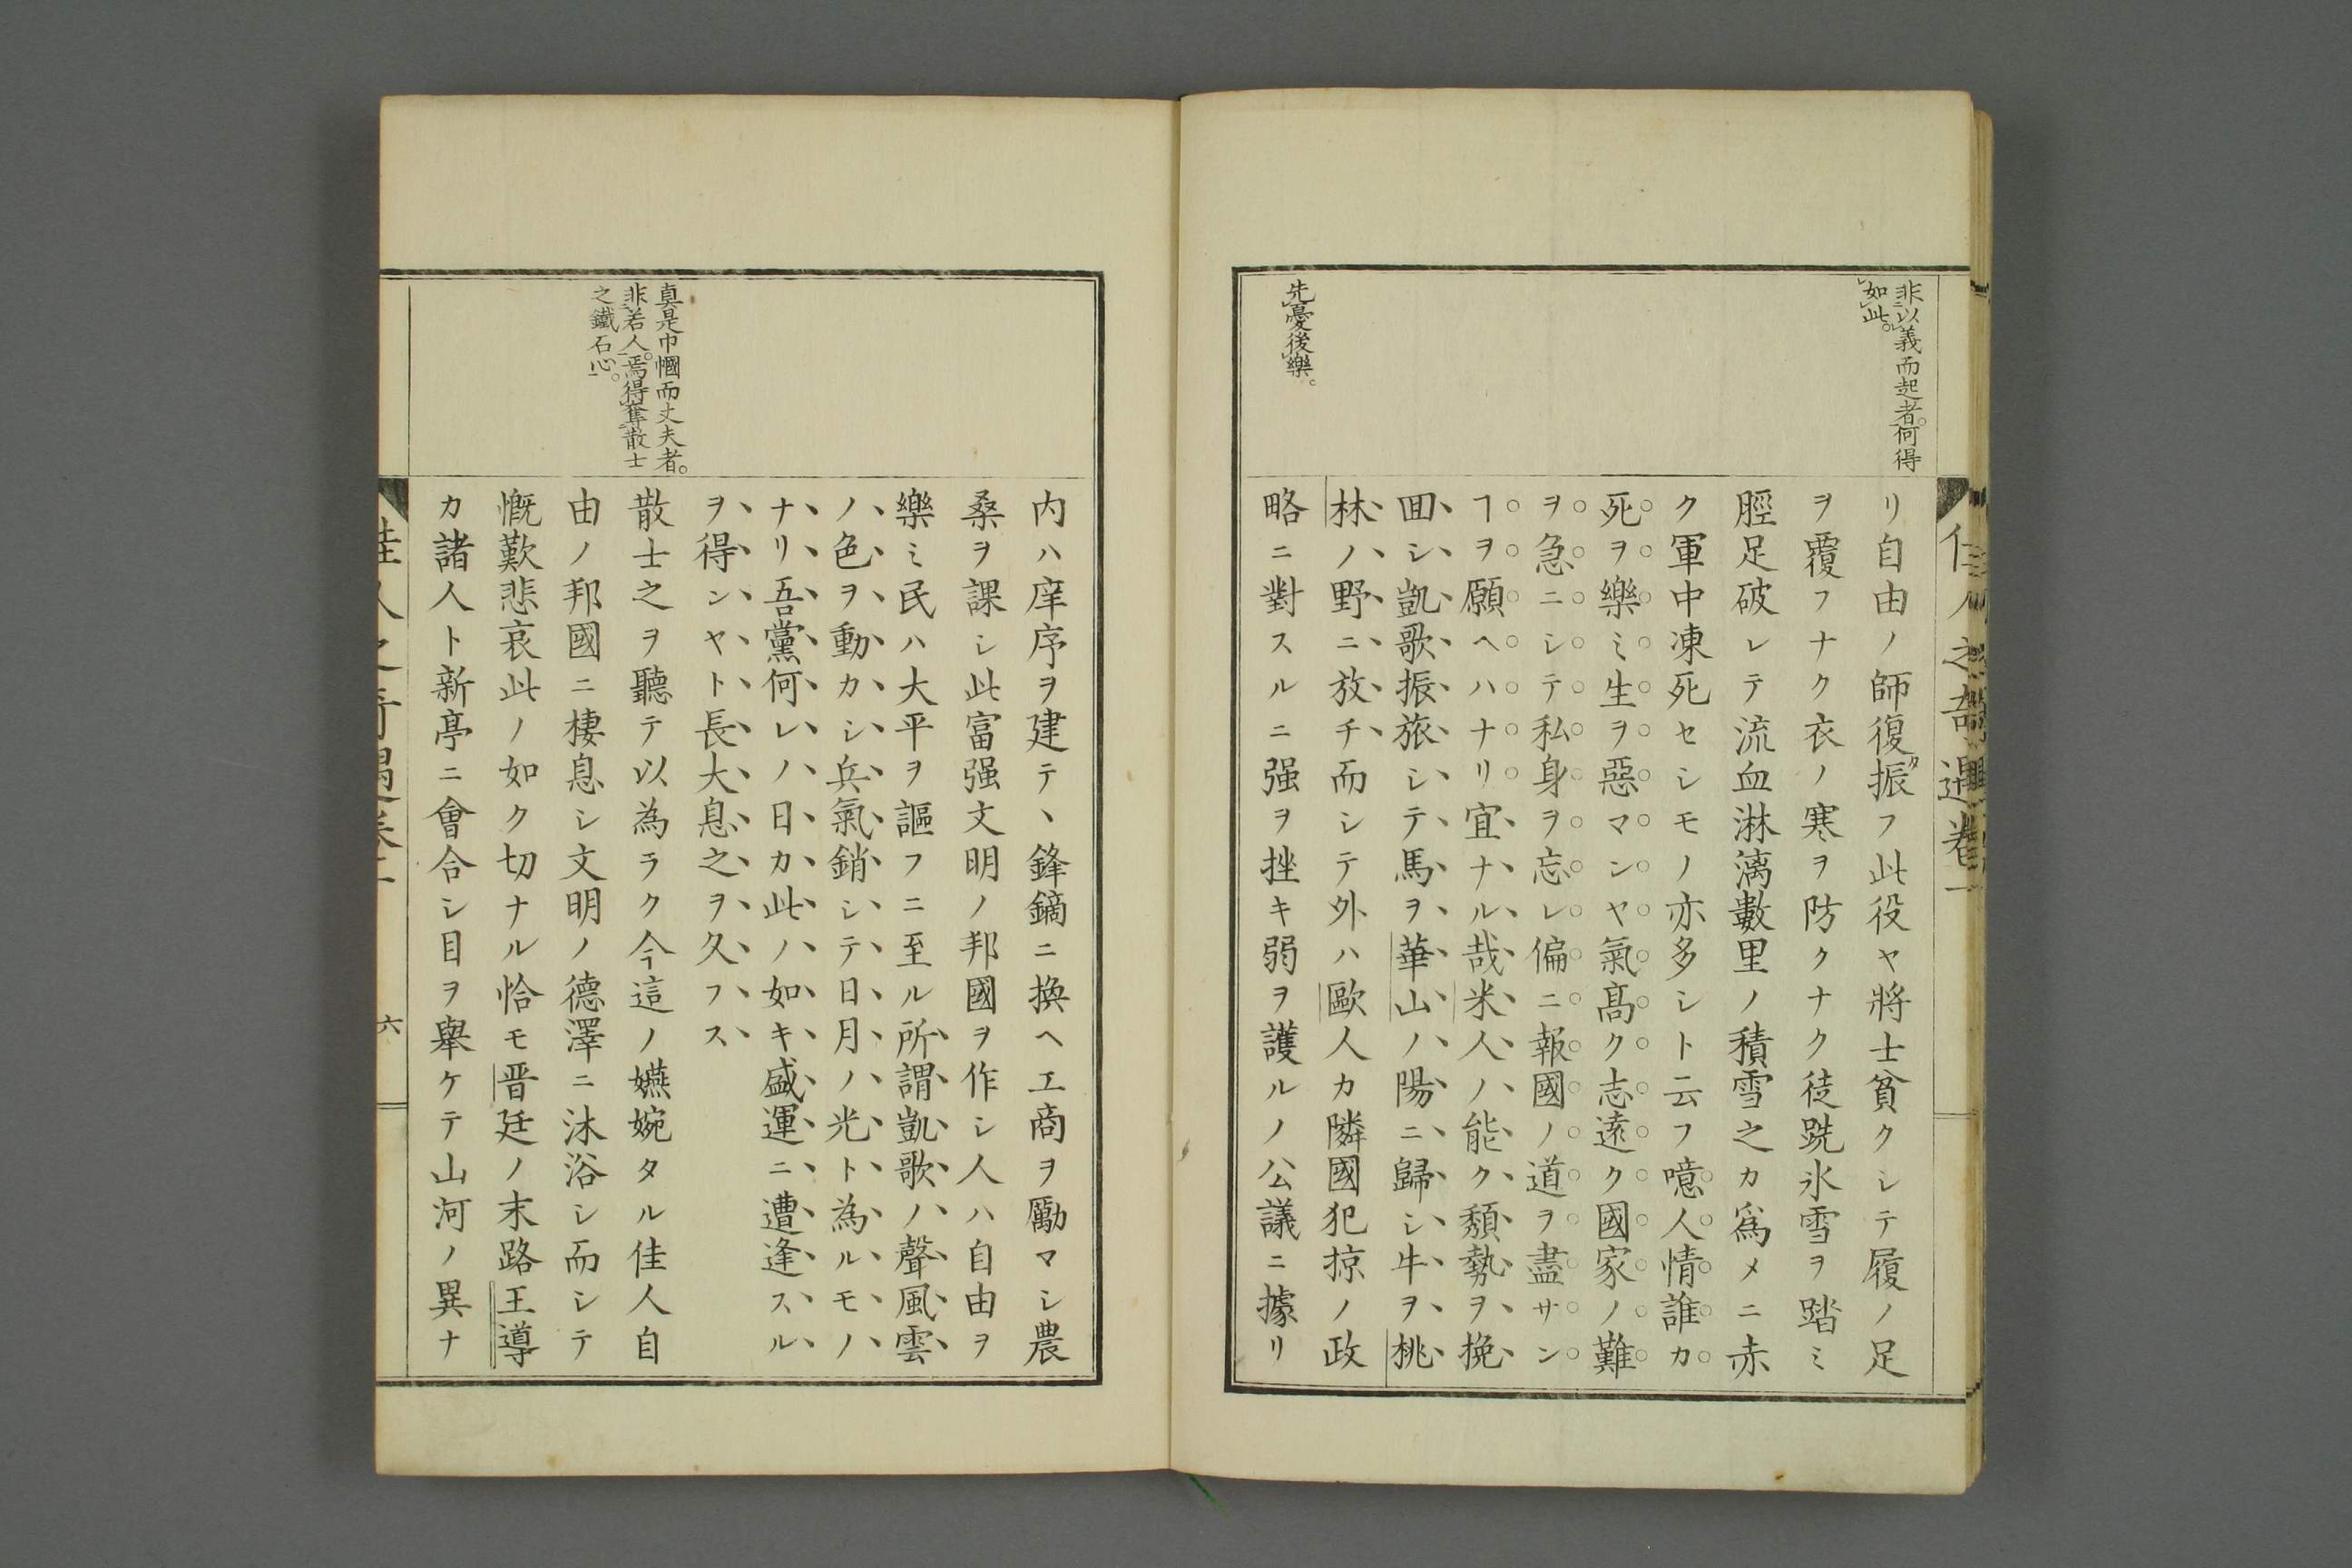 佳人之奇遇卷一
非以義而起者。何得
如此。
先憂後樂。
リ自由ノ師復タ振フ此役ヤ將士貧クシテ履ノ足
ヲ覆フナク衣ノ寒ヲ防クナク徒跣氷雪ヲ踏ミ
脛足破レテ流血淋漓數里ノ積雪之カ爲メニ赤
ク軍中凍死セシモノ亦多シト云フ噫人情誰カ
死ヲ樂ミ生ヲ惡マンヤ氣髙ク志遠ク國家ノ難
ヲ急ニシテ私身ヲ忘レ偏ニ報國ノ道ヲ盡サン
ヿヲ願ヘハナリ宜ナル哉米人ノ能ク頽勢ヲ挽
回シ凱歌振旅シテ馬ヲ華山ノ陽ニ歸シ牛ヲ桃
林ノ野ニ放チ而シテ外ハ歐人カ隣國犯掠ノ政
略ニ對スルニ强ヲ挫キ弱ヲ護ルノ公議ニ據リ
真是巾幗而丈夫者。
非若人。焉得奪散士
之鐵石心。
内ハ庠序ヲ建テヽ鋒鏑ニ換ヘ工商ヲ勵マシ農
桑ヲ課シ此富强文明ノ邦國ヲ作シ人ハ自由ヲ
樂ミ民ハ大平ヲ謳フニ至ル所謂凱歌ノ聲風雲
ノ色ヲ動カシ兵氣銷シテ日月ノ光ト為ルモノ
ナリ吾黨何レノ日カ此ノ如キ盛運ニ遭逢スル
ヲ得ンヤト長大息之ヲ久フス
散士之ヲ聽テ以為ラク今這ノ嬿婉タル佳人自
由ノ邦國ニ棲息シ文明ノ德澤ニ沐浴シ而シテ
慨歎悲哀此ノ如ク切ナル恰モ晋廷ノ末路王導
カ諸人ト新亭ニ會合シ目ヲ舉ケテ山河ノ異ナ
佳人之奇遇卷一
六